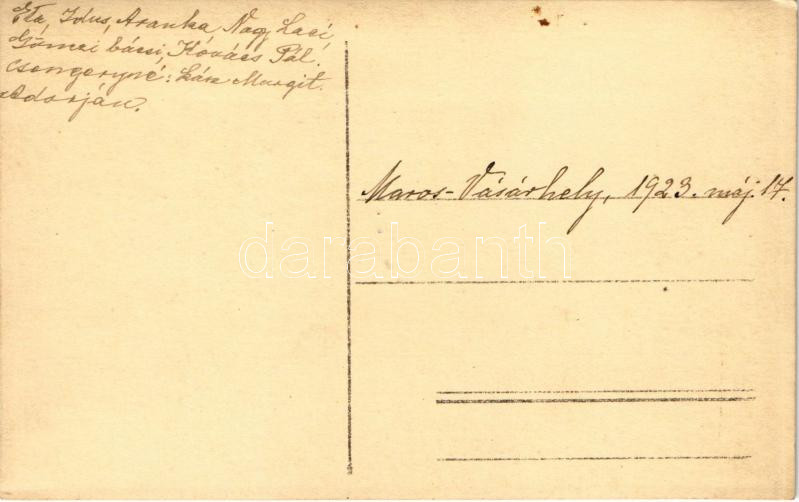 Ela, Idus, Aranka Nagy Laci
Gömei bácsi, Kovács Pál.
Csengeryné: Lász Margit.
Adorján.
Maros-Vásárhely, 1923. máj. 17.
darabanth